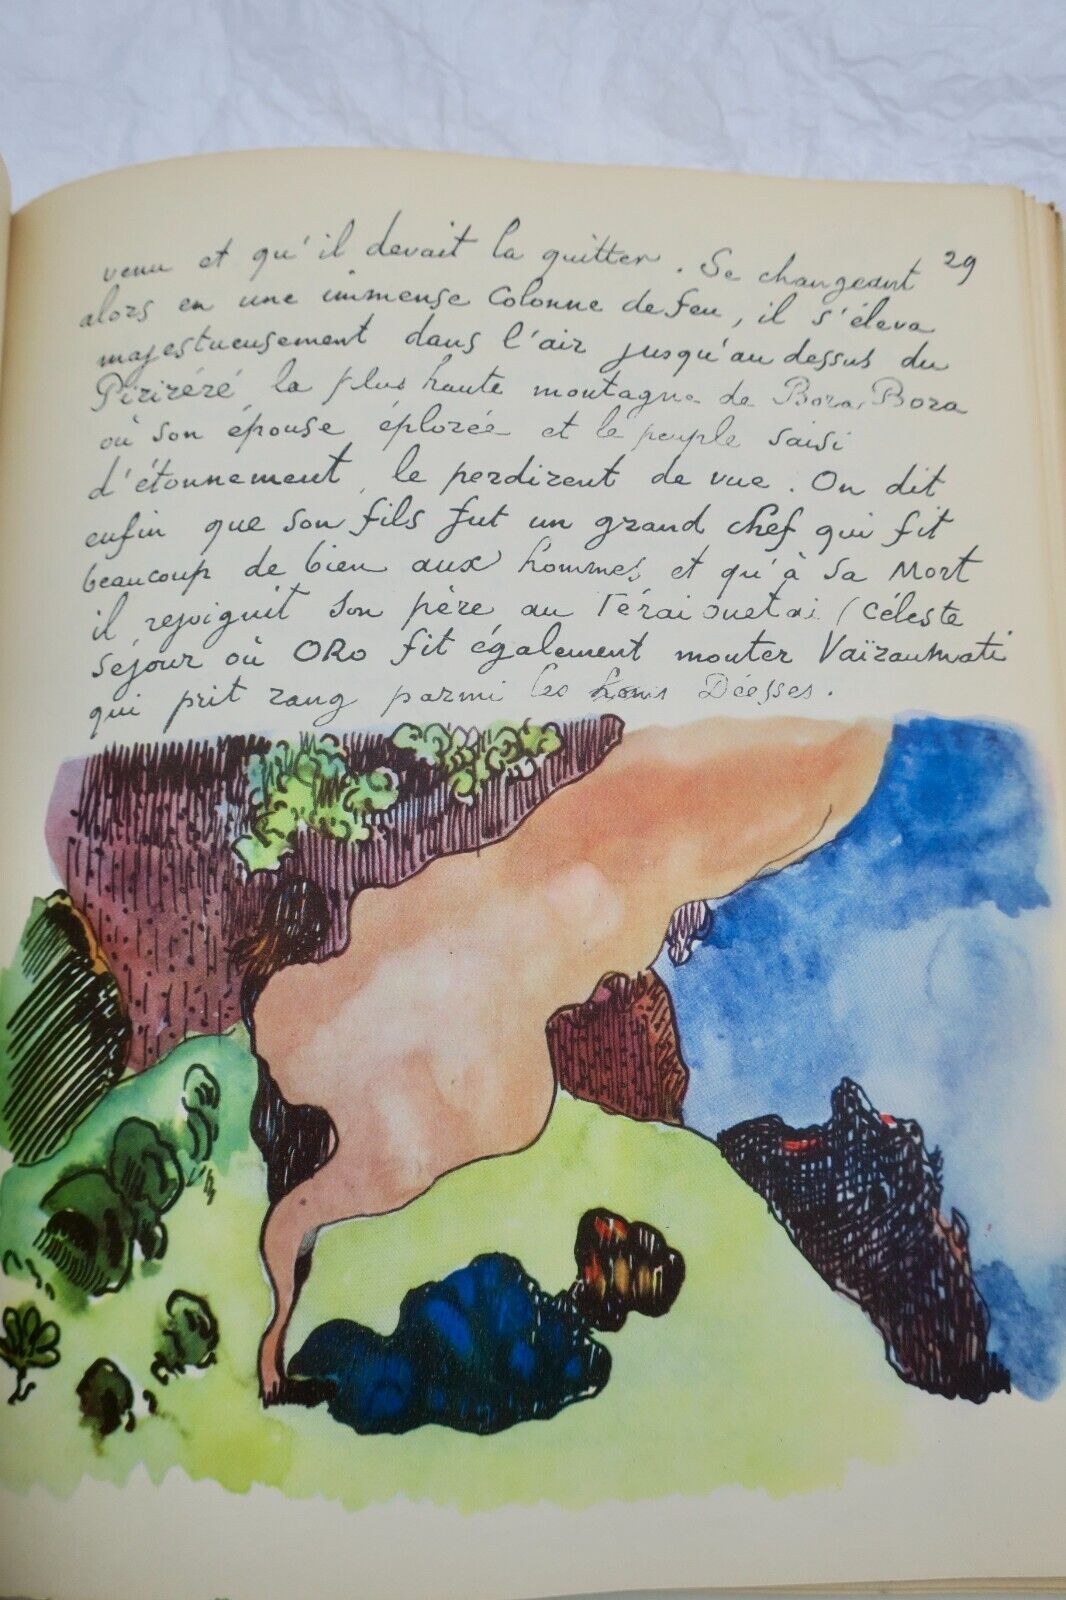 venu et qu'il devait la quitter. Se changeant 29
alors en une immense Colonne de feu, il s'éleva
majestueusement dans l'air jusqu'au dessus du
Piriréré la plus haute montagne de Bora, Bora
où son épouse éplorée et le peuple saisi
d'étonnement, le perdirent de vue. On dit
enfin que son fils fut un grand chef qui fit
beaucoup de bien aux hommes, et qu'à sa Mort
il rejoignit son père au Térai ouetai (Céleste
séjour où ORO fit également monter Vaïraumati
qui prit rang parmi les Déesses.